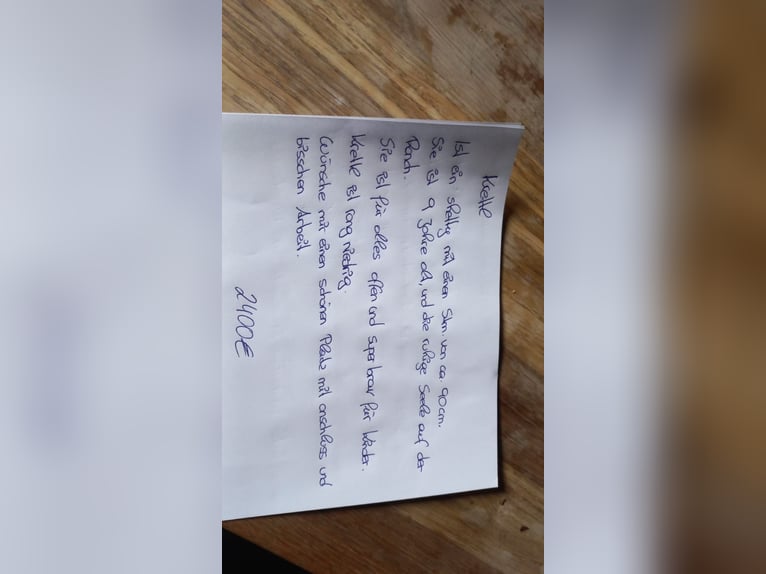 Krelle
Ist ein shetty mit einen Stm. von ca. 90cm.
Sie ist 9 Jahre alt, und die ruhige Seele auf der
Ranch.
Sie ist für alles offen und super brav für kinder.
Krelle ist rang niedrig.
Wünsche mir einen schönen Platz mit anschluss und
bisschen Arbeit.
2400€